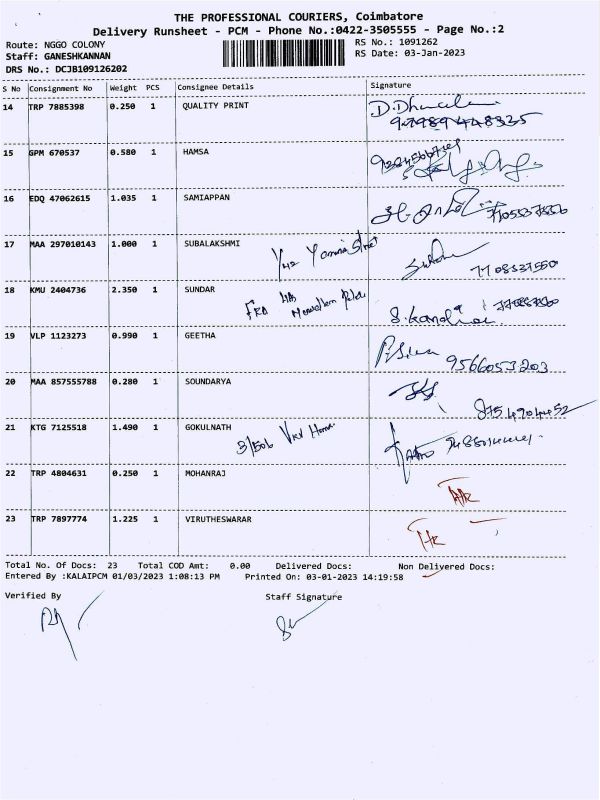 THE PROFESSIONAL COURIERS, Coimbatore
Delivery Runsheet - PCM - Phone No.:0422-3505555 - Page No.:2
Route: NGGO COLONY RS No.: 1091262
Staff: GANESHKANNAN RS Date: 03-Jan-2023
DRS No.: DCJB109126202
S No Consignment No Weight PCS Consignee Details Signature
14 TRP 7885398 0.250 1 QUALITY PRINT
15 GPM 670537 0.580 1 HAMSA
16 EDQ 47062615 1.035 1 SAMIAPPAN
17 MAA 297010143 1.000 1 SUBALAKSHMI Street
18 KMU 2404736 2.350 1 SUNDAR
19 VLP 1123273 0.990 1 GEETHA
9566053203
20 MAA 857555788 0.280 1 SOUNDARYA
8754904452
21 KTG 7125518 1.490 1 GOKULNATH 3/506
22 TRP 4804631 0.250 1 MOHANRAJ
23 TRP 7897774 1.225 1 VIRUTHESWARAR
Total No. Of Docs: 23 Total COD Amt: 0.00 Delivered Docs: Non Delivered Docs:
Entered By :KALAIPCM 01/03/2023 1:08:13 PM Printed On: 03-01-2023 14:19:58
Verified By Staff Signature